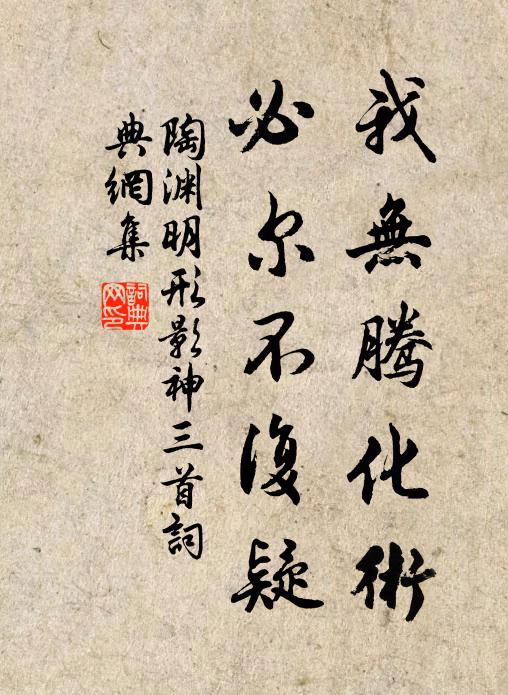 我無騰化術
必尔不復疑
陶渊明形影神三首詞
典網集
詞典
网印